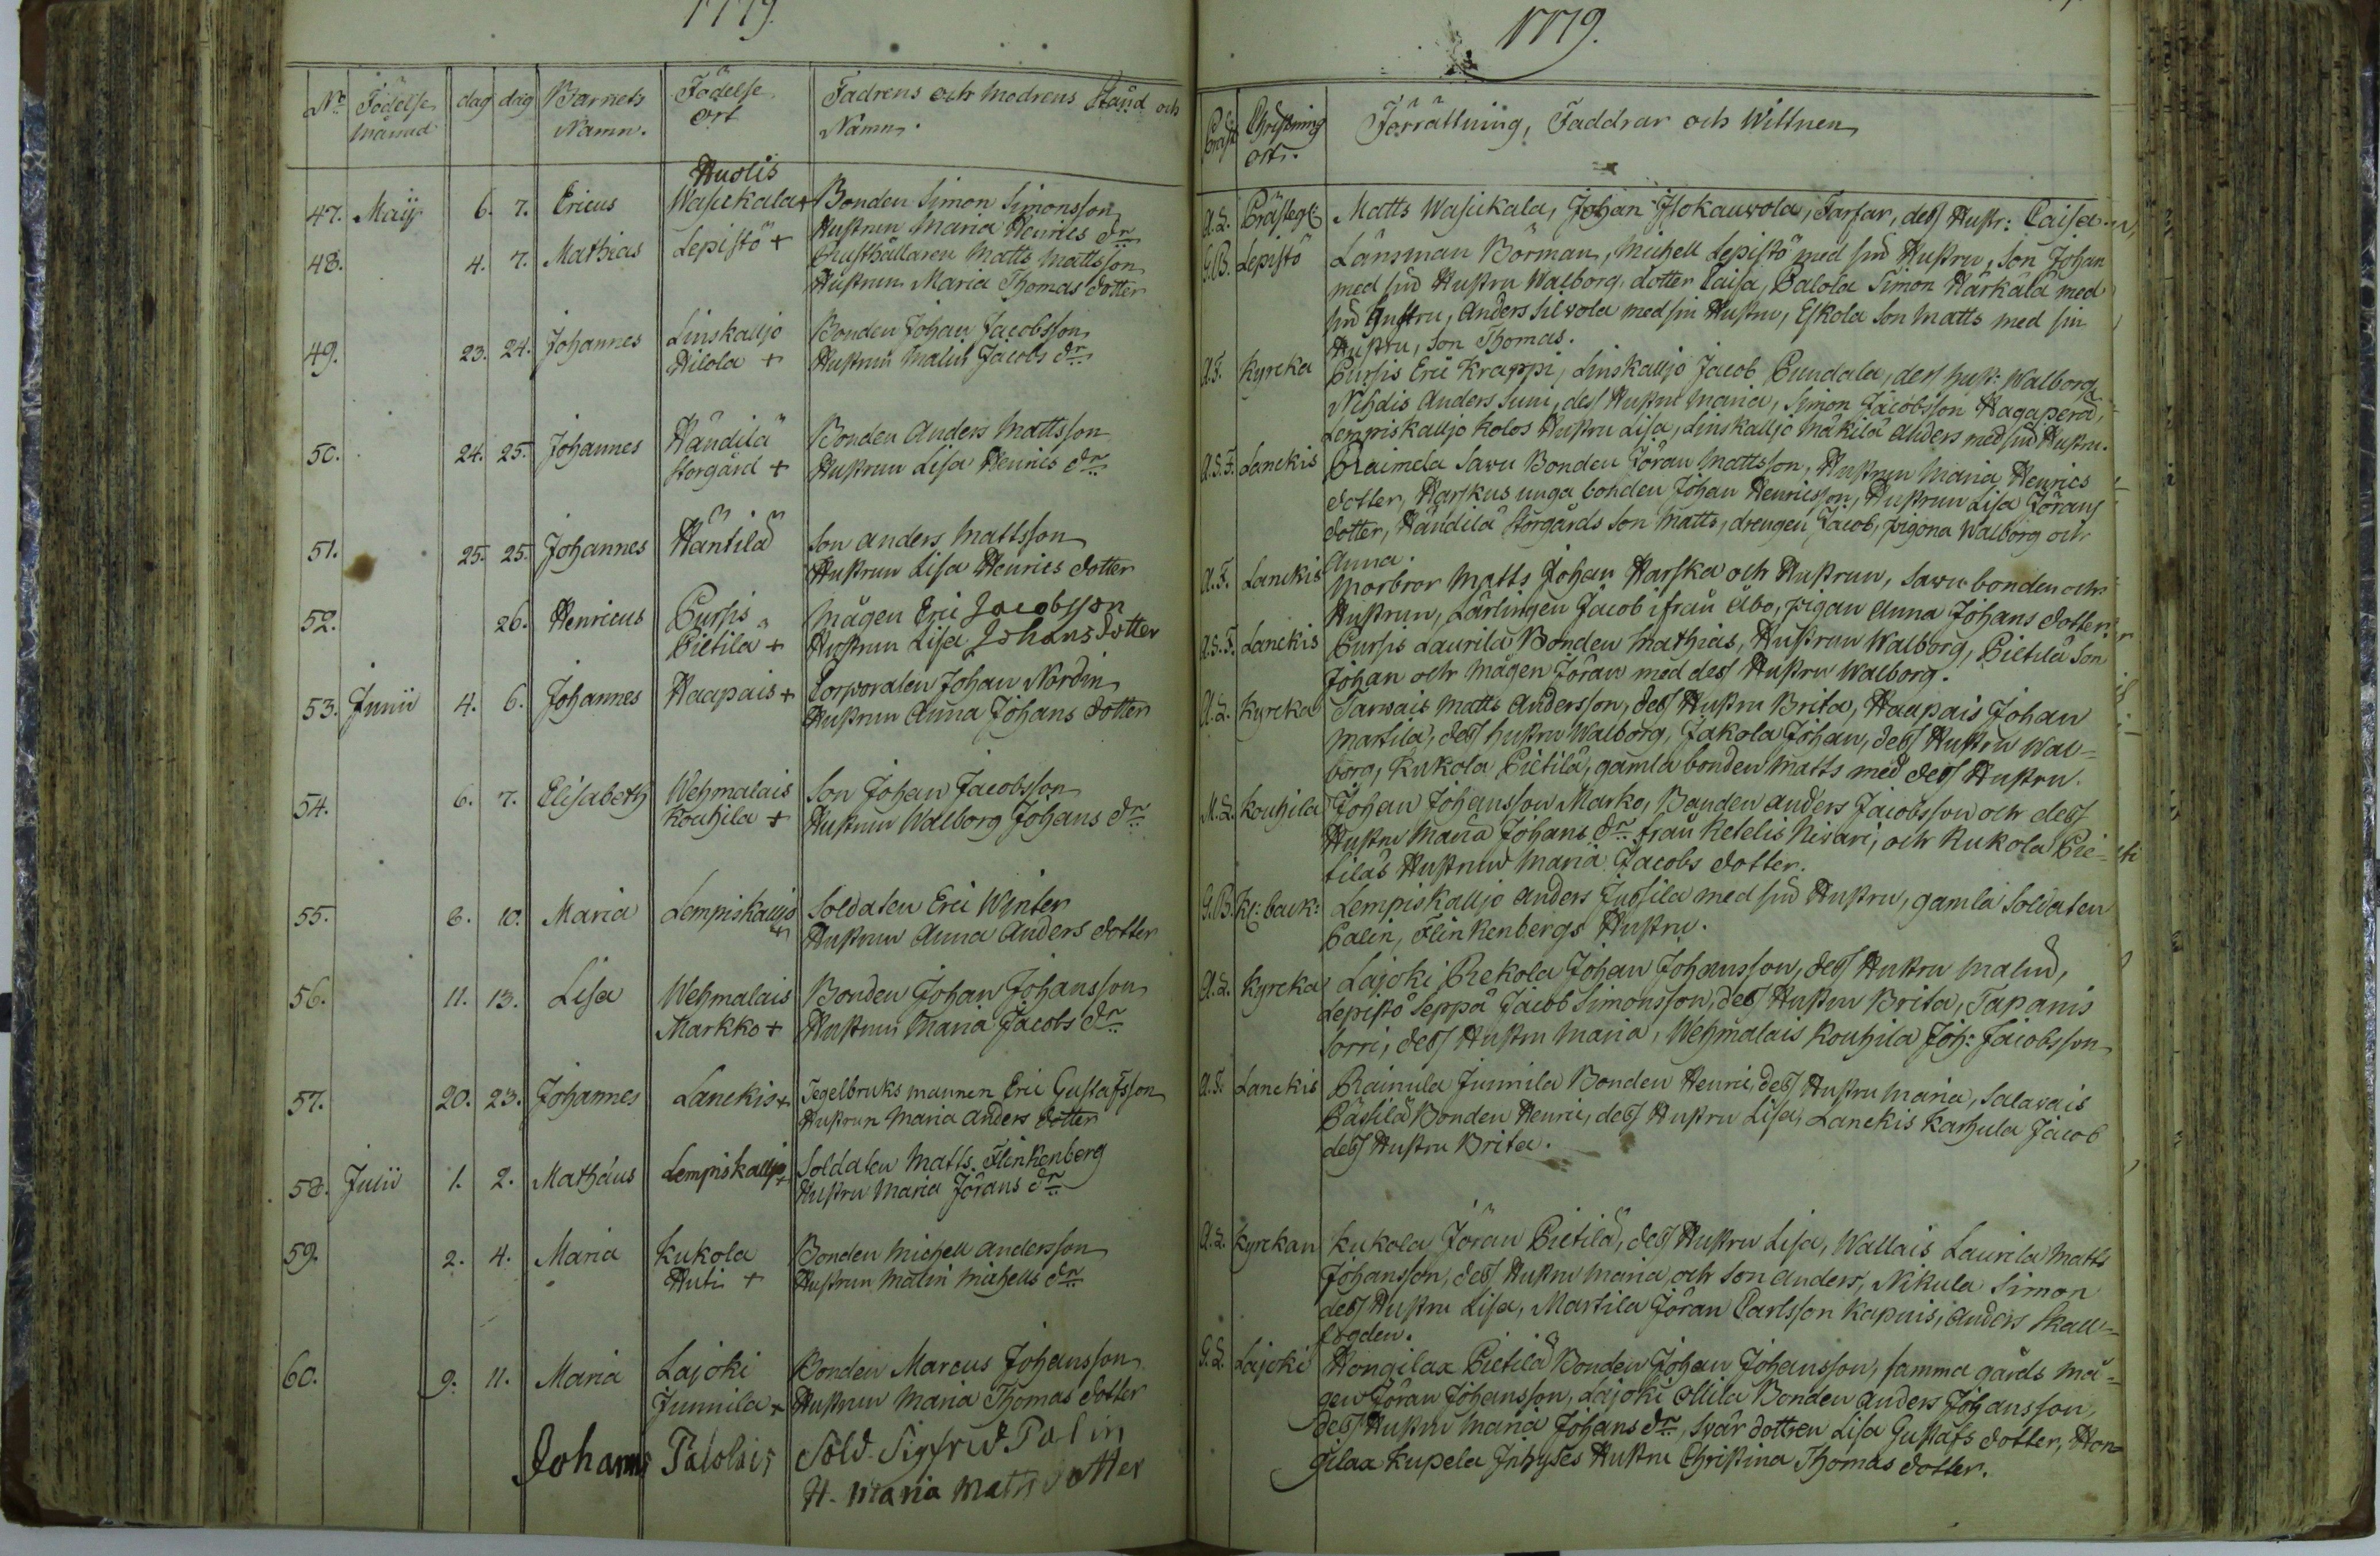 1779.
Nr Födelse månad dag dag Barnets Namn. Födelse ort Fadrens och Modrens Stånd och Namn.
Huolis
47. Maij 6. 7. Ericus Wasukala + Bonden Simon Simonsson
Hustrun Maria Henrics dr
48. 4. 7. Mathias Lepistö + Rusthållaren Matts Mattsson
Hustrun Maria Thomas dotter
49. 23. 24. Johannes Linskalljo Bonden Johan Jacobsson
Hilola + Hustrun Malin Jacobs dr
50. 24. 25. Johannes Händilä Bonden Anders Mattsson
Storgård + Hustrun Lisa Henrics dr
51. 25. 25. Johannes Häntilä Son Anders Mattsson
Hustrun Lisa Henrics dotter
52. 26. Henricus Pursis Mågen Eric Jacobsson
Pietilä + Hustrun Lisa Johans dotter
53. Junii 4. 6. Johannes Haapais + Corporalen Johan Nordin
Hustrun Anna Johans dotter
54. 6. 7. Elisabeth Wehmalais Son Johan Jacobsson
Kouhila + Hustrun Walborg Johans dr
55. 8. 10. Maria Lempiskalljo Soldaten Eric Winter
Hustrun Anna Anders dotter
56. 11. 13. Lisa Wehmalais Bonden Johan Johansson
Markko + Hustrun Maria Jacobs dr
57. 20. 23. Johannes Lanekis + Tegelbruks mannen Eric Gustafsson
Hustrun Maria Anders dotter
58. Julii 1. 2. Mathäus Lempiskalljo + Soldaten Matts Flinkenberg
Hustru Maria Jörans dr
59. 2. 4. Maria Kukola Bonden Michell Andersson
Huti + Hustrun Malin Michells dr
60. 9. 11. Maria Lajoki Bonden Marcus Johansson
Junnila + Hustrun Maria Thomas dotter
Johannes Palolais Sold. Sigfrid Palin
H. Maria Matts dotter
1779.
Präst Christning ort. Förrättning, Faddrar och Wittnen
A.L. Prästeg: Matts Wasukala, Johan Isokauvola, Farfar, dess Hustr: Caisa
G.B. Lepistö Länsman Börman, Michell Lepistö med sin Hustru, Son Johan
med sin Hustru Walborg, dotter Caisa, Palola Simon Härkälä med
sin Hustru, Anders Silvola med sin Hustru, Eskola Son Matts med sin
Hustru, Son Thomas.
A.F. Kyrcka Pursis Eric Krappi, Linskalljo Jacob Pundala, dess hust: Walborg
Nihdis Anders Suni, dess Hustru Maria, Simon Jacobsson Hagaperä,
Lempiskalljo Kolos Hustru Lisa, Linskalljo Mäkilä Anders med sin Hustru.
A.S.F. Lanekis Raimela Sawu Bonden Jöran Mattsson, Hustrun Maria Henrics
dotter, Harskus unga bonden Johan Henricsson, Hustrun Lisa Jörans
dotter, Händilä Storgårds Son Matts, drengen Jacob, pigorna Walborg och
Anna.
A.F. Lanekis Morbror Matts Johan Harska och Hustrun, Sawu bonden och
Hustrun, Lärlingen Jacob ifrån Åbo, pigan Anna Johans dotter.
A.S.F. Lanekis Pursis Laurila Bonden Mathias, Hustrun Walborg, Pietilä Son
Johan och mågen Jöran med dess Hustru Walborg.
A.L. Kyrcka Tarwais Matts Andersson, dess Hustru Brita, Haapais Johan
Martila, dess hustru Walborg, Jakola Johan, dess Hustru Wal=
borg, Kukola Pietilä, gamla bonden Matts med dess Hustru.
M.L. Kouhila Johan Johansson Marko, Bonden Anders Jacobsson och dess
Hustru Maria Johans dr från Ketelis Nivari, och Kukola Pie=
tiläs Hustrun Maria Jacobs dotter.
G.B. Kl: back: Lempiskalljo Anders Jussila med sin Hustru, gamla Soldaten
Palin, Flinkenbergs Hustru.
A.L. Kyrcka Lajoki Rekola Johan Johansson, dess Hustru Malin,
Lepistö Seppä Jacob Simonsson, dess Hustru Brita, Tapanis
Sorri, dess Hustru Maria, Wehmalais Kouhila Joh: Jacobsson
A.F. Lanekis Rainula Junnila Bonden Henric, dess Hustru Maria, Salavais
Pässilä Bonden Henric, dess Hustru Lisa, Lanekis Karhula Jacob
dess Hustru Brita.
A.L. Kyrckan Kukola Jöran Pietilä, dess Hustru Lisa, Wallais Laurila Matts
Johansson, dess Hustru Maria och Son Anders, Nikula Simon
dess Hustru Lisa, Martila Jöran Carlsson Kapuis, Anders Skall=
fogden.
G.L. Lajoki Hongilax Pietilä Bonden Johan Johansson, samma gårds må=
gen Jöran Johansson, Lajoki Ollila Bonden Anders Johansson
dess Hustru Maria Johans dr, Svär dottren Lisa Gustafs dotter, Hon=
gilax Kupela Inhyses Hustru Christina Thomas dotter.